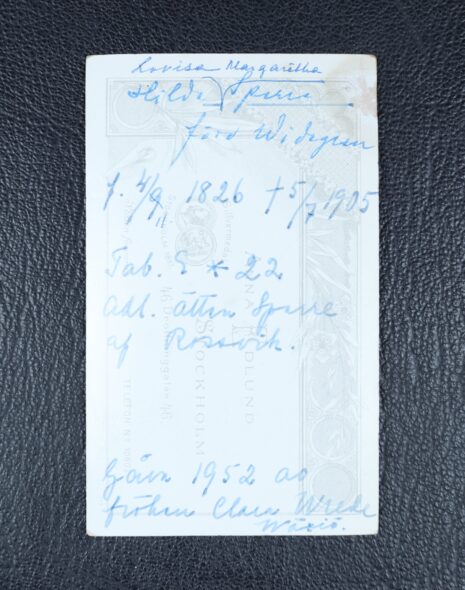 Lovisa Margaretha
Hilda Sparre
född Widegren
f. 4/9 1826 † 5/7 1905
Tab. 9 * 22
Adl. ätten Sparre
af Rossvik.
Gåva 1952 av
fröken Clara Wrede
Växiö.
ANNA EDLUND
STOCKHOLM
46 Drottninggatan 46
TELEFON